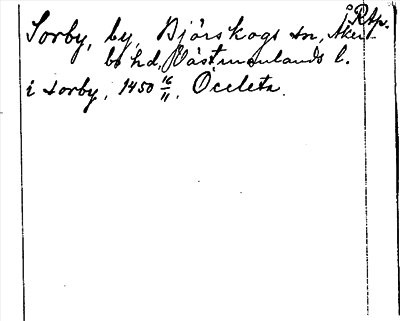 Sorby, by, Björskogs sn, Åker-
bo hd, Västmanlands l.
i sorby, 1450 16/11.